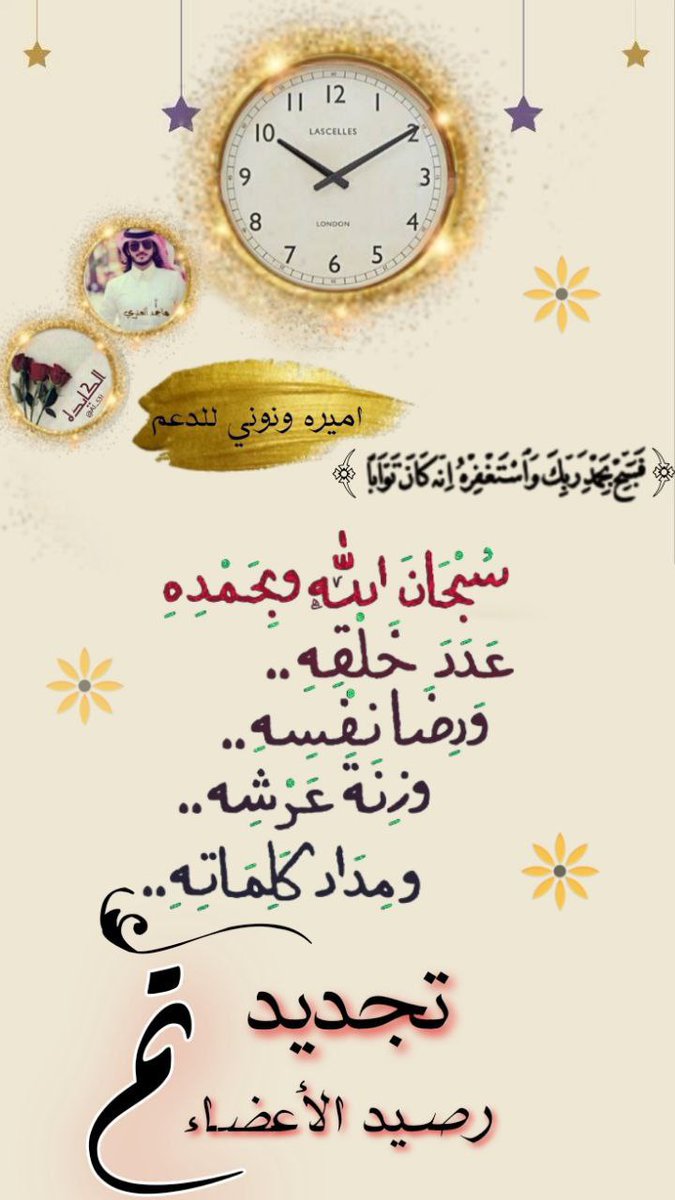 12
11 1
LASCELLES
10 2
9 3
LONDON
8 4
7 5
6
ماجد العنزي
الكايده
اميره ونوني للدعم
فَسَبِّحْ بِحَمْدِ رَبِّكَ وَاسْتَغْفِرْهُ إِنَّهُ كَانَ تَوَّابًا
سُبْحَانَ اللهِ وبِحَمْدِهِ
عَدَدَ خَلْقِهِ..
وَرِضَا نَفْسِهِ..
وزِنَةَ عَرْشِه..
ومِدَاد كَلِمَاتِهِ..
تم تجديد
رصيد الأعضاء